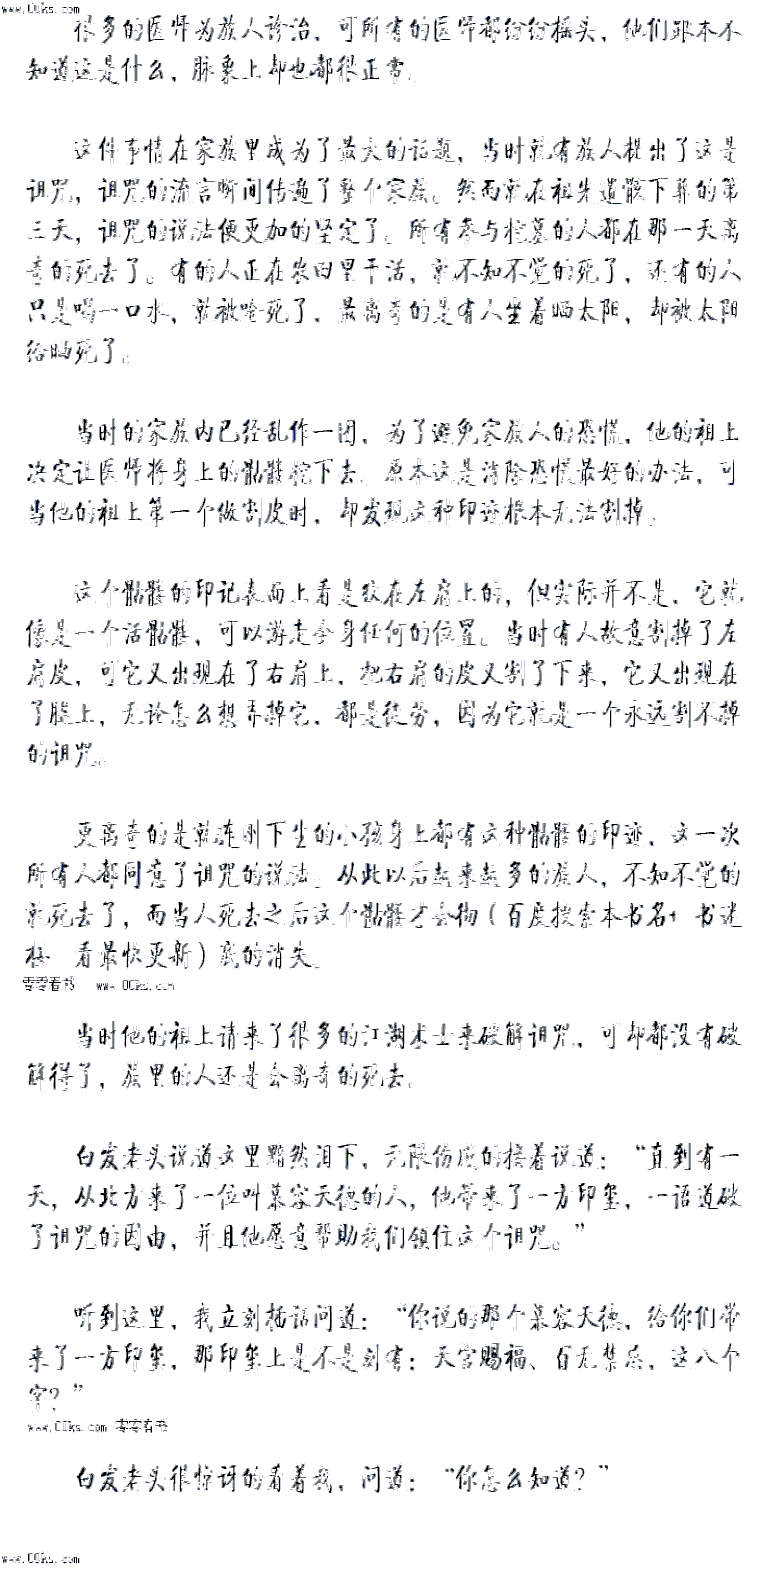 www.00ks.com
很多的医师为族人诊治，可所有的医师都纷纷摇头，他们跟本不
知道这是什么，脉象上却也都很正常。
这件事情在家族里成为了最大的话题，当时就有族人提出了这是
诅咒，诅咒的流言瞬间传遍了整个家族。然而就在祖先遗骸下葬的第
三天，诅咒的说法便更加的坚定了。所有参与挖墓的人都在那一天离
奇的死去了。有的人正在农田里干活，就不知不觉的死了，还有的人
只是喝一口水，就被呛死了，最离奇的是有人坐着晒太阳，却被太阳
给晒死了。
当时的家族内已经乱作一团，为了避免家族人的恐慌，他的祖上
决定让医师将身上的骷髅挖下去。原本这是消除恐慌最好的办法，可
当他的祖上第一个做割皮时，却发现这种印迹根本无法割掉。
这个骷髅的印记表面上看是纹在左肩上的，但实际并不是，它就
像是一个活骷髅，可以游走全身任何的位置。当时有人故意割掉了左
肩皮，可它又出现在了右肩上，把右肩的皮又割了下来，它又出现在
了腿上，无论怎么想弄掉它，都是徒劳，因为它就是一个永远割不掉
的诅咒。
更离奇的是就连刚下生的小孩身上都有这种骷髅的印迹，这一次
所有人都同意了诅咒的说法。从此以后越来越多的族人，不知不觉的
就死去了，而当人死去之后这个骷髅才会彻（百度搜索本书名+ 书迷
楼 看最快更新）底的消失。
零零看书 www.00ks.com
当时他的祖上请来了很多的江湖术士来破解诅咒，可却都没有破
解得了，族里的人还是会离奇的死去。
白发老头说道这里黯然泪下，无限伤感的接着说道：“直到有一
天，从北方来了一位叫慕容天德的人，他带来了一方印玺，一语道破
了诅咒的因由，并且他愿意帮助我们镇住这个诅咒。”
听到这里，我立刻插话问道：“你说的那个慕容天德，给你们带
来了一方印玺，那印玺上是不是刻有：天官赐福、百无禁忌，这八个
字？”
www.00ks.com 零零看书
白发老头很惊讶的看着我，问道：“你怎么知道？”
www.00ks.com